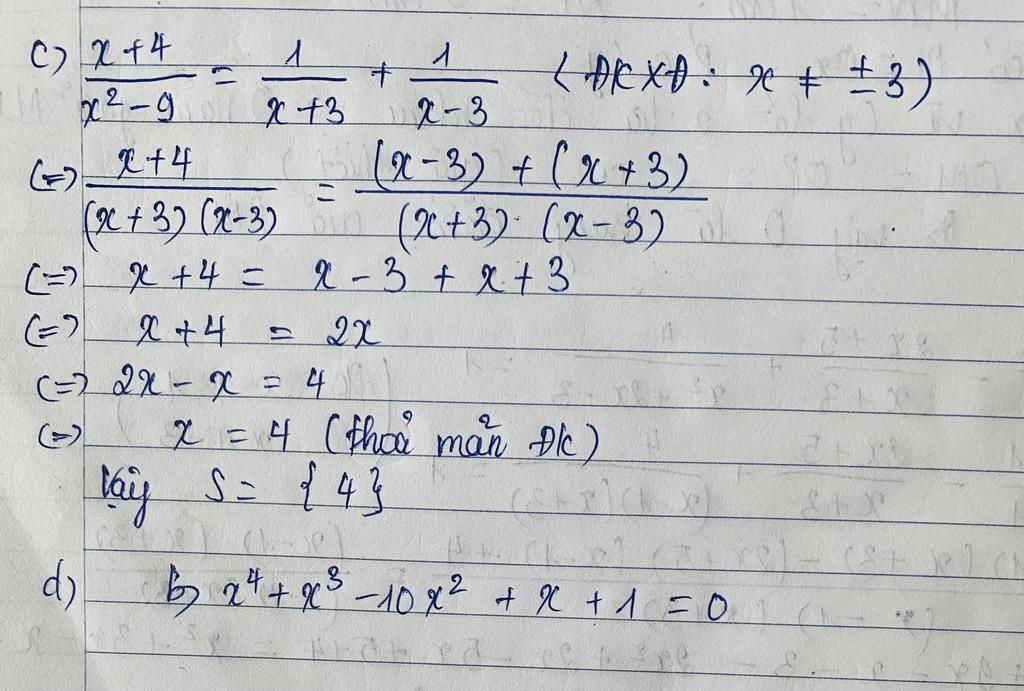 c) x+4/x²-9 = 1/x+3 + 1/x-3 (ĐKXĐ: x ≠ ±3)
(=) x+4/(x+3)(x-3) = (x-3)+(x+3)/(x+3).(x-3)
(=) x+4 = x-3+x+3
(=) x+4 = 2x
(=) 2x-x = 4
(=) x = 4 (thoả mãn ĐK)
Vậy S = {4}
d) x⁴+x³-10x²+x+1=0